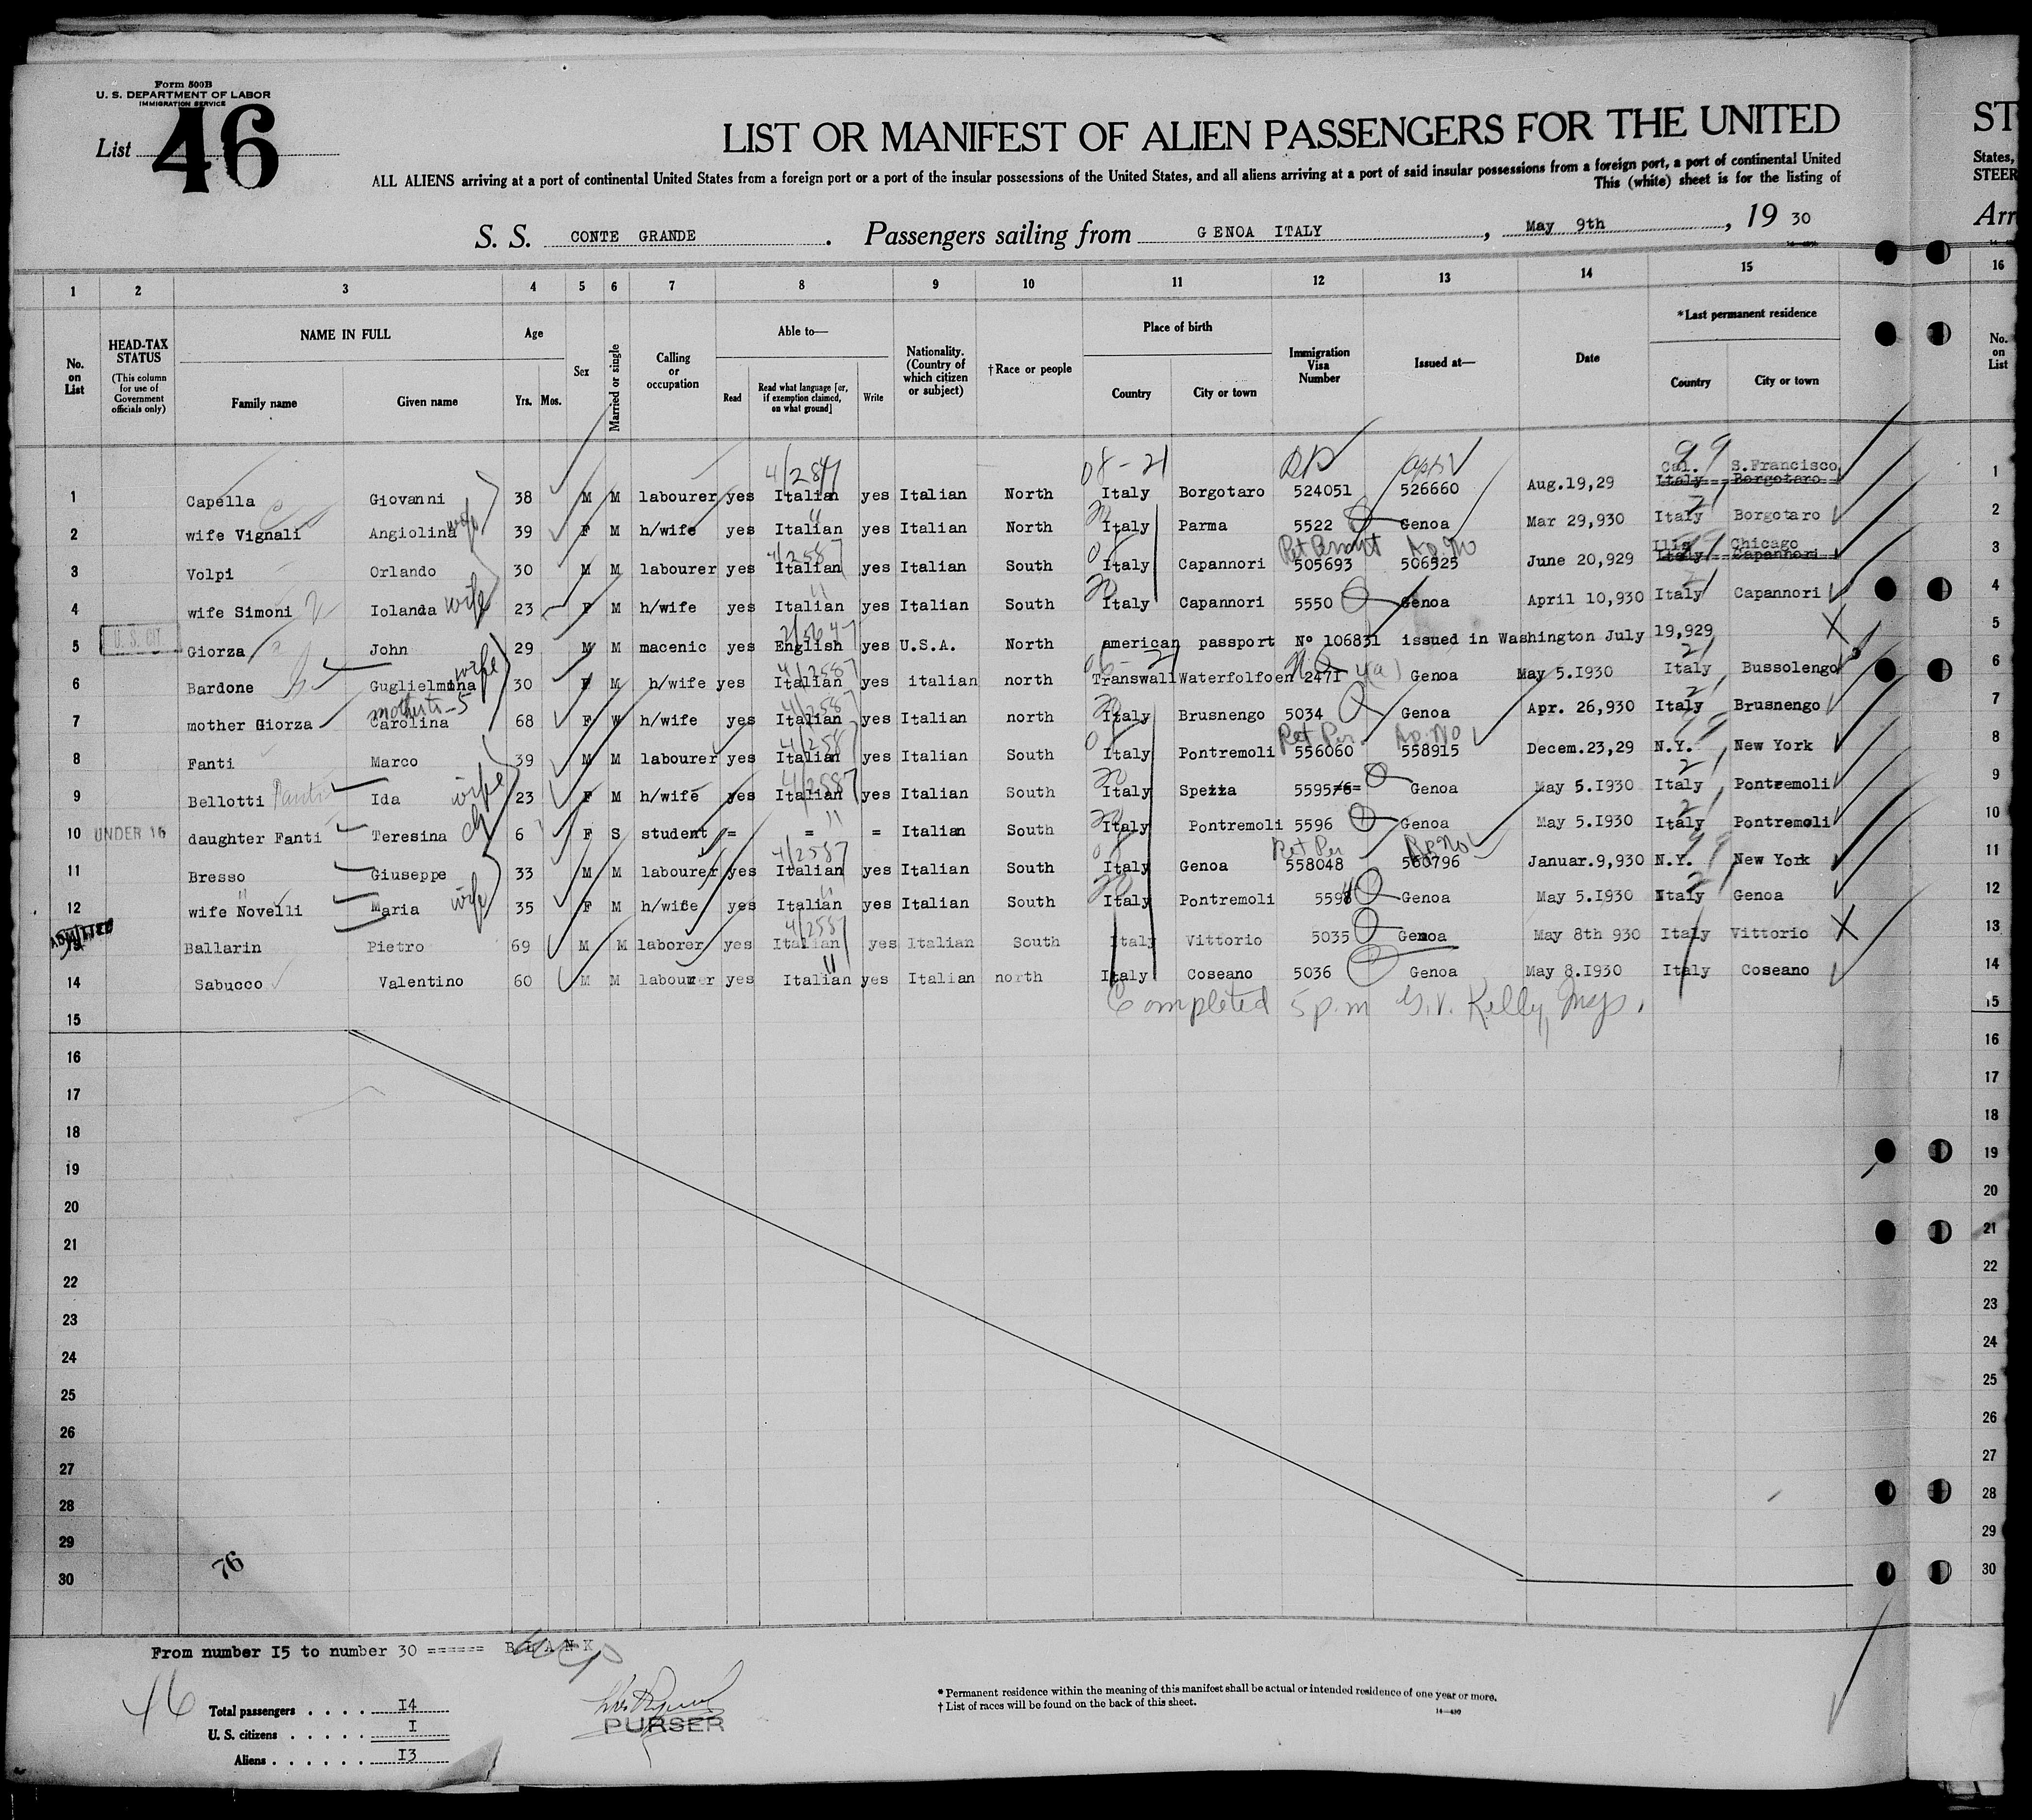 Form 500B
U. S. DEPARTMENT OF LABOR
IMMIGRATION SERVICE
List 46
LIST OR MANIFEST OF ALIEN PASSENGERS FOR THE UNITED
ALL ALIENS arriving at a port of continental United States from a foreign port or a port of the insular possessions of the United States, and all aliens arriving at a port of said insular possessions from a foreign port, a port of continental United
This (white) sheet is for the listing of
S. S. CONTE GRANDE. Passengers sailing from GENOA ITALY, May 9th, 19 30
ST
States,
STEER
Arr
1 2 3 4 5 6 7 8 9 10 11 12 13 14 15 16
No. on List
HEAD-TAX STATUS (This column for use of Government officials only)
NAME IN FULL
Family name Given name
Age
Yrs. Mos.
Sex
Married or single
Calling or occupation
Able to—
Read
Read what language [or, if exemption claimed, on what ground]
Write
Nationality. (Country of which citizen or subject)
†Race or people
Place of birth
Country City or town
Immigration Visa Number
Issued at—
Date
*Last permanent residence
Country City or town
No. on List
08-21 99
Cal. S.Francisco
1 Capella Giovanni 38 M M labourer yes Italian yes Italian North Italy Borgotaro 524051 526660 Aug.19,29 Italy Borgotaro 1
2 wife Vignali Angiolina wife 39 F M h/wife yes Italian yes Italian North Italy Parma 5522 Genoa Mar 29,930 Italy Borgotaro 2
Ret Permit Ap. No Chicago
3 Volpi Orlando 30 M M labourer yes Italian yes Italian South Italy Capannori 505693 506525 June 20,929 Italy Capannori 3
4 wife Simoni Iolanda wife 23 F M h/wife yes Italian yes Italian South Italy Capannori 5550 Genoa April 10,930 Italy Capannori 4
U. S. CIT.
5 Giorza John 29 M M macenic yes English yes U.S.A. North american passport N° 106831 issued in Washington July 19,929 5
6 Bardone Guglielmina wife 30 F M h/wife yes Italian yes italian north Transwall Waterfolfoen 2471 4(a) Genoa May 5.I930 Italy Bussolengo 6
mother to-5
7 mother Giorza Carolina 68 F W h/wife yes Italian yes Italian north Italy Brusnengo 5034 Genoa Apr. 26,930 Italy Brusnengo 7
Ret Per. Ap. No
8 Fanti Marco 39 M M labourer yes Italian yes Italian South Italy Pontremoli 556060 558915 Decem.23,29 N.Y. New York 8
9 Bellotti Fanti Ida wife 23 F M h/wife yes Italian yes Italian South Italy Spezza 5595 Genoa May 5.I930 Italy Pontremoli 9
10 UNDER 16 daughter Fanti Teresina ch 6 F S student = = = Italian South Italy Pontremoli 5596 Genoa May 5.I930 Italy Pontremoli 10
Ret Per Ap. No
11 Bresso Giuseppe 33 M M labourer yes Italian yes Italian South Italy Genoa 558048 560796 Januar.9,930 N.Y. New York 11
12 wife Novelli Maria wife 35 F M h/wife yes Italian yes Italian South Italy Pontremoli 5594 Genoa May 5.I930 Italy Genoa 12
ADMITTED
Ballarin Pietro 69 M M laborer yes Italian yes Italian South Italy Vittorio 5035 Genoa May 8th 930 Italy Vittorio 13
14 Sabucco Valentino 60 M M labourer yes Italian yes Italian north Italy Coseano 5036 Genoa May 8.I930 Italy Coseano 14
15 Completed 5 p.m Kelly, Insp. 15
16 16
17 17
18 18
19 19
20 20
21 21
22 22
23 23
24 24
25 25
26 26
27 27
28 28
29 29
30 30
76
From number I5 to number 30 ====== BLANK
46
Total passengers . . . . I4
U. S. citizens . . . . . I
Aliens . . . . . . I3
PURSER
* Permanent residence within the meaning of this manifest shall be actual or intended residence of one year or more.
† List of races will be found on the back of this sheet.
14—490